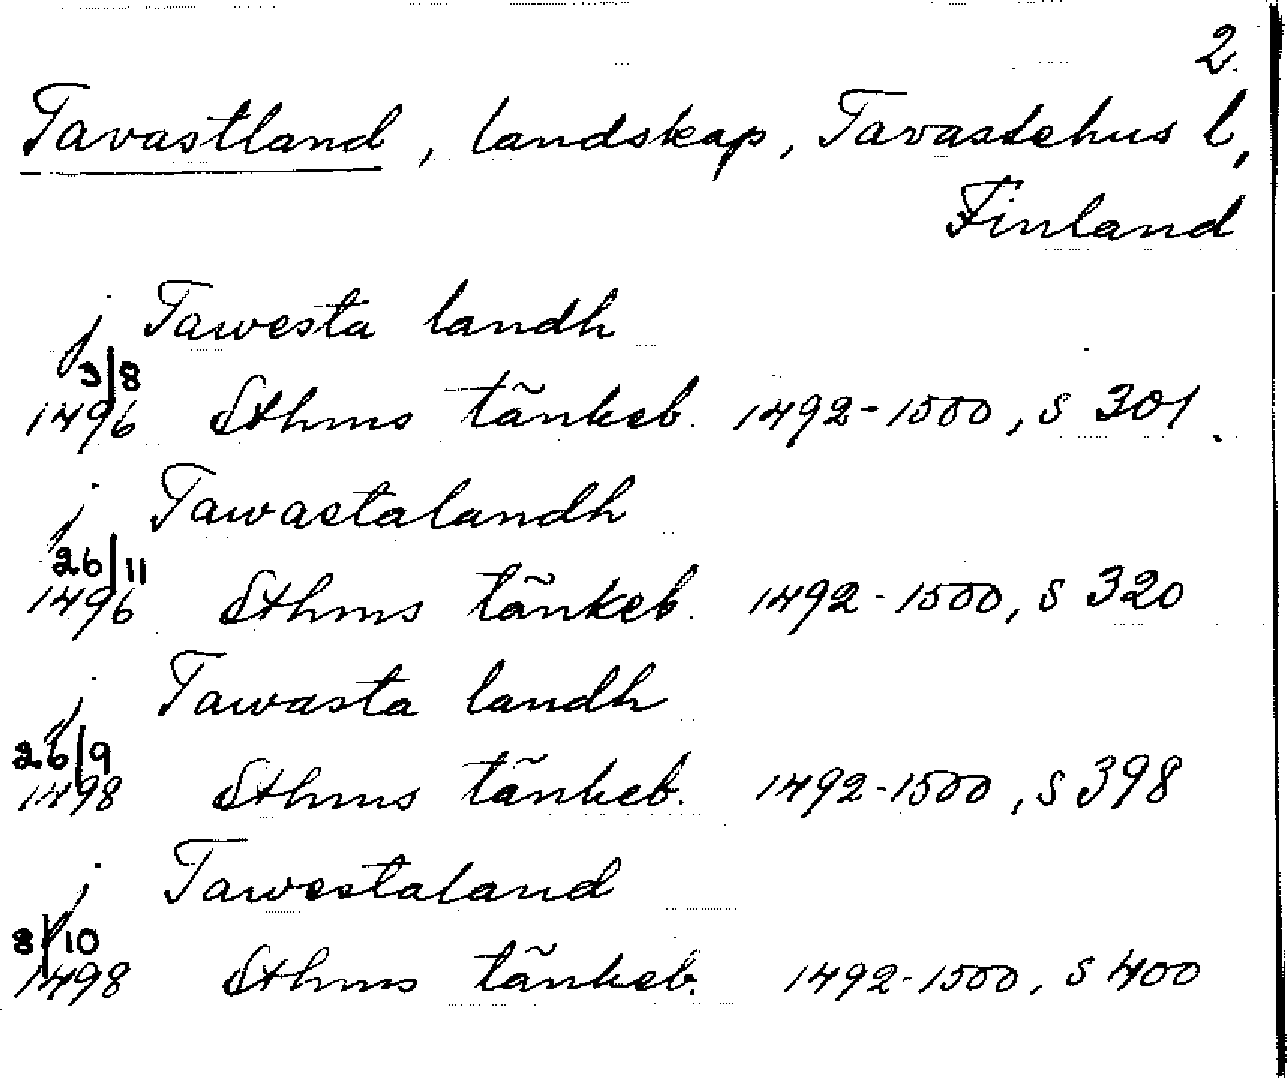 2.
Tavastland, landskap, Tavastehus l,
Finland
j Tawesta landh
3/8
1496 Sthms tänkeb. 1492-1500, s 301.
j Tawastalandh
26/11
1496 Sthms tänkeb. 1492-1500, s 320
j Tawasta landh
26/9
1498 Sthms tänkeb. 1492-1500, s 398
j Tawestaland
8/10
1498 Sthms tänkeb. 1492-1500, s 400